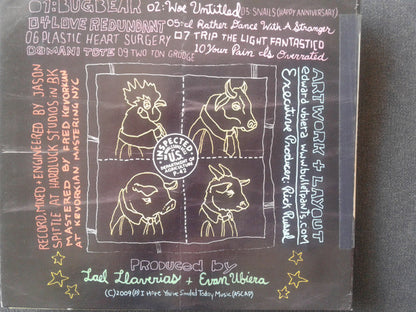 01: BUGBEAR 02: Woe Untitled 03 SNAILS (HAPPY ANNIVERSARY)
04 LOVE REDUNDANT 05: I'd Rather Dance With A Stranger
06 PLASTIC HEART SURGERY 07 TRIP THE LIGHT FANTASTICO
08 MANI TOTE 09 TWO TON GRUDGE 10 Your Pain is Overrated
RECORD, MIXED + ENGINEERED BY JASON
SPITTLE AT HARDLUCK STUDIOS IN BK
MASTERED BY FRED KEVORKIAN
AT KEVORKIAN MASTERING NYC
INSPECTED
U.S.
DEPARTMENT OF
P-42
ARTWORK + LAYOUT
edward ubiera www.bulletpants.com
Executive Producer: Rich Russel
PRODUCED by
Lael Llaverias + Evan Ubiera
(C) 2009 (P) I Hope You've Smiled Today Music (ASCAP)